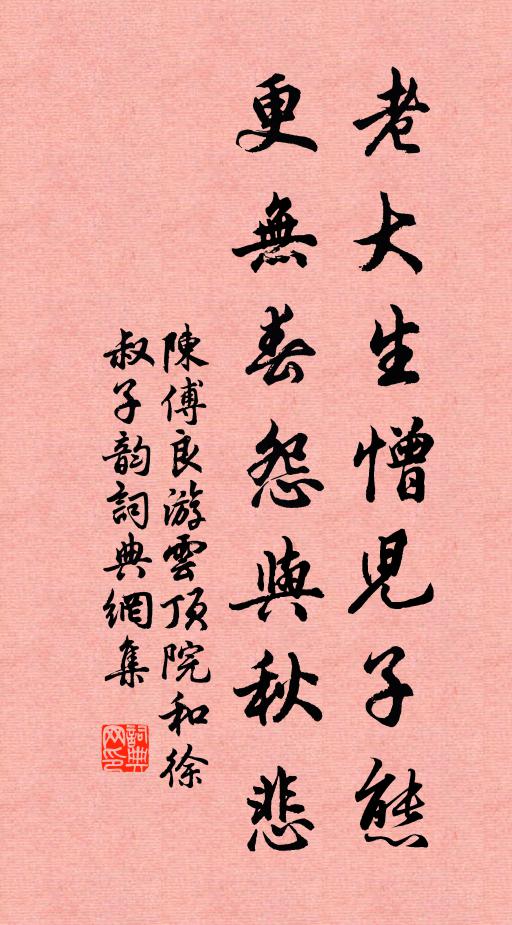 老大生憎兒子態
更無春怨與秋悲
陳傅良游雲頂院和徐
叔子韵詞典網集
詞典网印